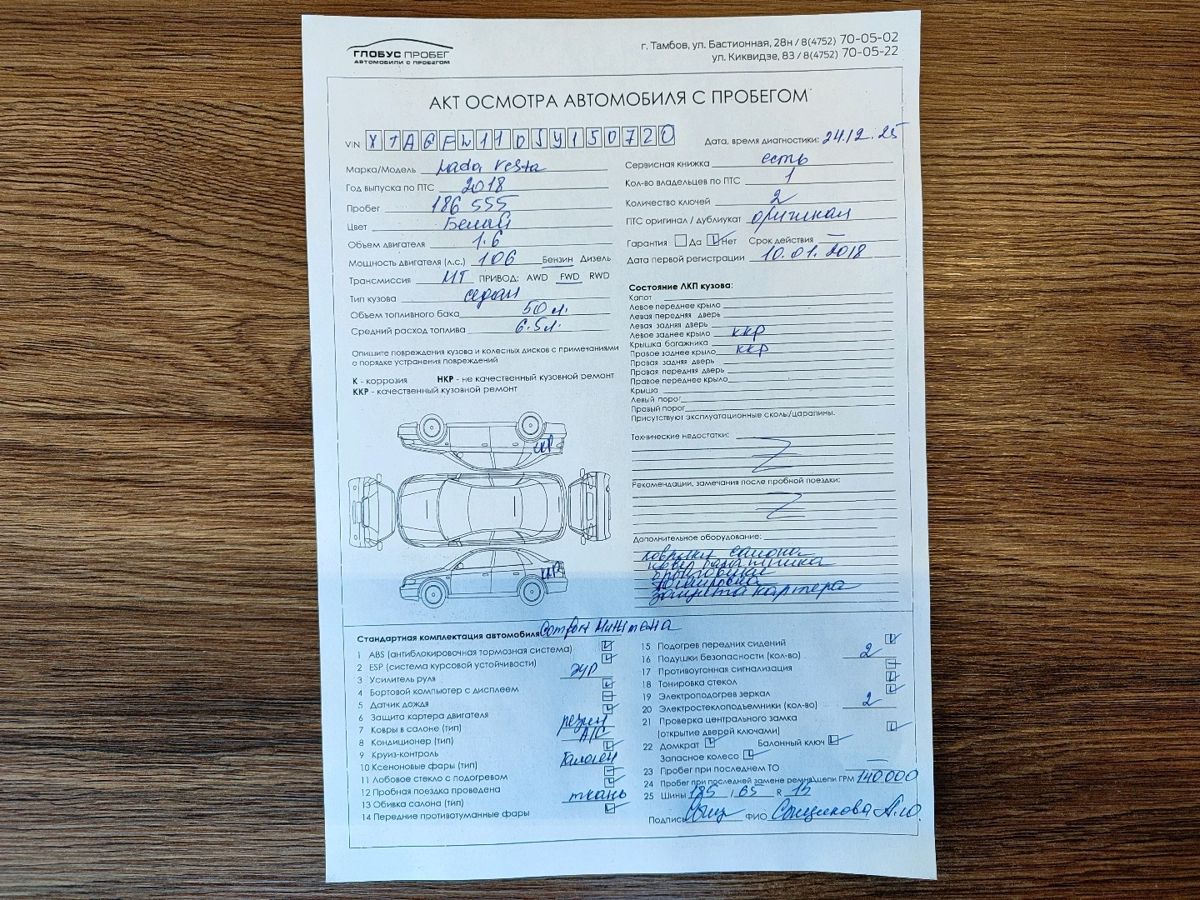 ГЛОБУС ПРОБЕГ
АВТОМОБИЛИ С ПРОБЕГОМ
г. Тамбов, ул. Бастионная, 28н / 8(4752) 70-05-02
ул. Киквидзе, 83 / 8(4752) 70-05-22
АКТ ОСМОТРА АВТОМОБИЛЯ С ПРОБЕГОМ
VIN XTAGFL11DJY150720
Дата, время диагностики: 24.12.25
Марка/Модель Lada Vesta
Год выпуска по ПТС 2018
Пробег 186 555
Цвет Белый
Объем двигателя 1.6
Мощность двигателя (л.с.) 106 Бензин Дизель
Трансмиссия МТ ПРИВОД: AWD FWD RWD
Тип кузова седан
Объем топливного бака 50 л.
Средний расход топлива 6.5л.
Опишите повреждения кузова и колесных дисков с примечаниями
о порядке устранения повреждений
К - коррозия НКР - не качественный кузовной ремонт
ККР - качественный кузовной ремонт
ККР
ККР
Сервисная книжка есть
Кол-во владельцев по ПТС 1
Количество ключей 2
ПТС оригинал / дубликат оригинал
Гарантия Да Нет Срок действия —
Дата первой регистрации 10.01.2018
Состояние ЛКП кузова:
Капот
Левое переднее крыло
Левая передняя дверь
Левая задняя дверь
Левое заднее крыло ккр
Крышка багажника
Правое заднее крыло ккр
Правая задняя дверь
Правая передняя дверь
Правое переднее крыло
Крыша
Левый порог
Правый порог
Присутствуют эксплуатационные сколы/царапины.
Технические недостатки:
Рекомендации, замечания после пробной поездки:
Дополнительное оборудование:
коврики салона
багажника
защита картера
Стандартная комплектация автомобиля
1 ABS (антиблокировочная тормозная система)
2 ESP (система курсовой устойчивости)
3 Усилитель руля ЭУР
4 Бортовой компьютер с дисплеем
5 Датчик дождя
6 Защита картера двигателя
7 Ковры в салоне (тип) резин
8 Кондиционер (тип) A/C
9 Круиз-контроль
10 Ксеноновые фары (тип) Галоген
11 Лобовое стекло с подогревом
12 Пробная поездка проведена
13 Обивка салона (тип) ткань
14 Передние противотуманные фары
15 Подогрев передних сидений
16 Подушки безопасности (кол-во) 2
17 Противоугонная сигнализация
18 Тонировка стекол
19 Электроподогрев зеркал
20 Электростеклоподъемники (кол-во) 2
21 Проверка центрального замка
(открытие дверей ключами)
22 Домкрат Балонный ключ
Запасное колесо
23 Пробег при последнем ТО —
24 Пробег при последней замене ремня/цепи ГРМ 140 000
25 Шины 185 / 65 R 15
Подпись ФИО А.Ю.